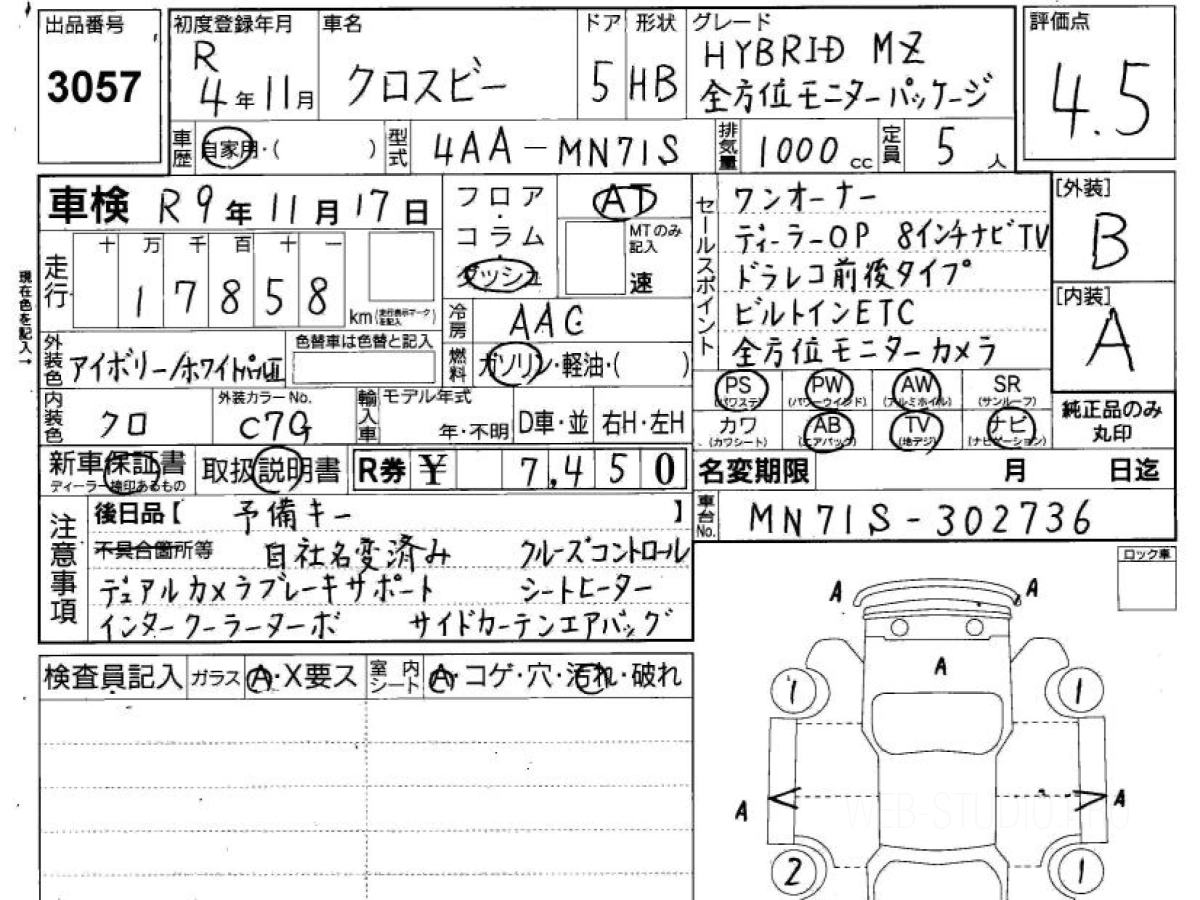 出品番号
3057
初度登録年月
R
4年11月
車名
クロスビー
ドア
5
形状
HB
グレード
HYBRID MZ
全方位モニターパッケージ
評価点
4.5
車歴
自家用・( )
型式
4AA-MN71S
排気量
1000 cc
定員
5 人
車検 R9年11月17日
走行
十 万 千 百 十 一
1 7 8 5 8
km(走行表示マークを記入)
現在色を記入→
フロア・コラム・ダッシュ
AT
MTのみ記入
速
冷房
AAC
燃料
ガソリン・軽油・( )
セールスポイント
ワンオーナー
ディーラーOP 8インチナビTV
ドラレコ前後タイプ
ビルトインETC
全方位モニターカメラ
[外装]
B
[内装]
A
外装色
アイボリー/ホワイトパールⅡ
色替車は色替と記入
内装色
クロ
外装カラーNo.
C7G
輸入車
モデル年式
年・不明
D車・並
右H・左H
PS
(パワステ)
PW
(パワーウインド)
AW
(アルミホイル)
SR
(サンルーフ)
カワ
(カワシート)
AB
(エアバック)
TV
(地デジ)
ナビ
(ナビゲーション)
純正品のみ
丸印
新車保証書
ディーラー捺印あるもの
取扱説明書
R券 ¥ 7,450
名変期限 月 日迄
注意事項
後日品【 予備キー 】
不具合箇所等 自社名変済み クルーズコントロール
デュアルカメラブレーキサポート シートヒーター
インタークーラーターボ サイドカーテンエアバッグ
車台No.
MN71S-302736
ロック車
検査員記入
ガラス
A・X要ス
室内シート
A・コゲ・穴・汚れ・破れ
A
A
A
1
1
A
A
2
1
WEB-STUDIO PRO